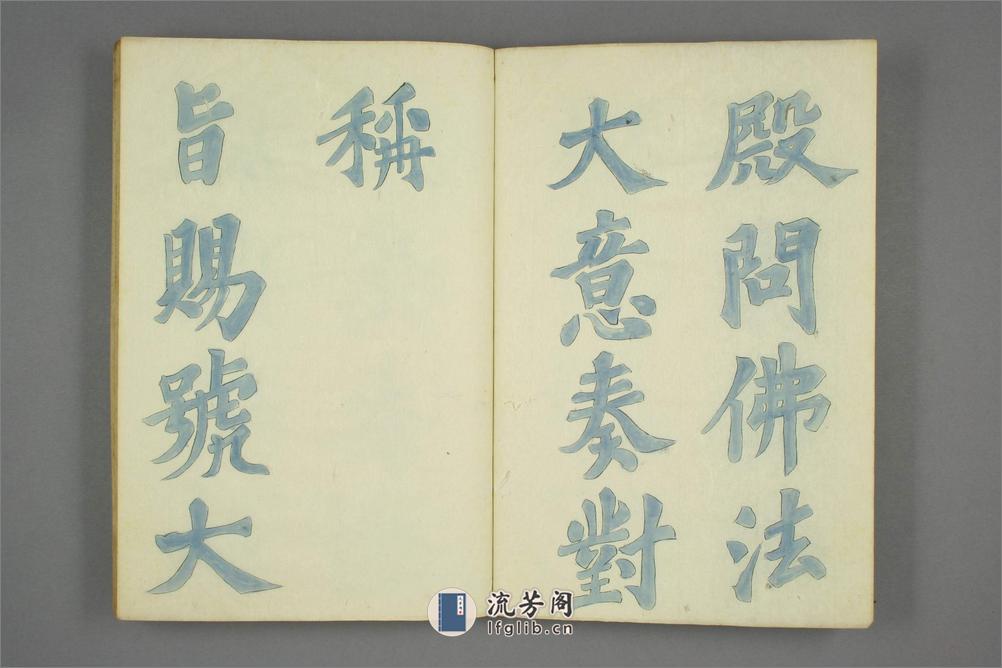 殿問佛法
大意奏對
稱
旨賜號大
流芳阁
lfglib.cn